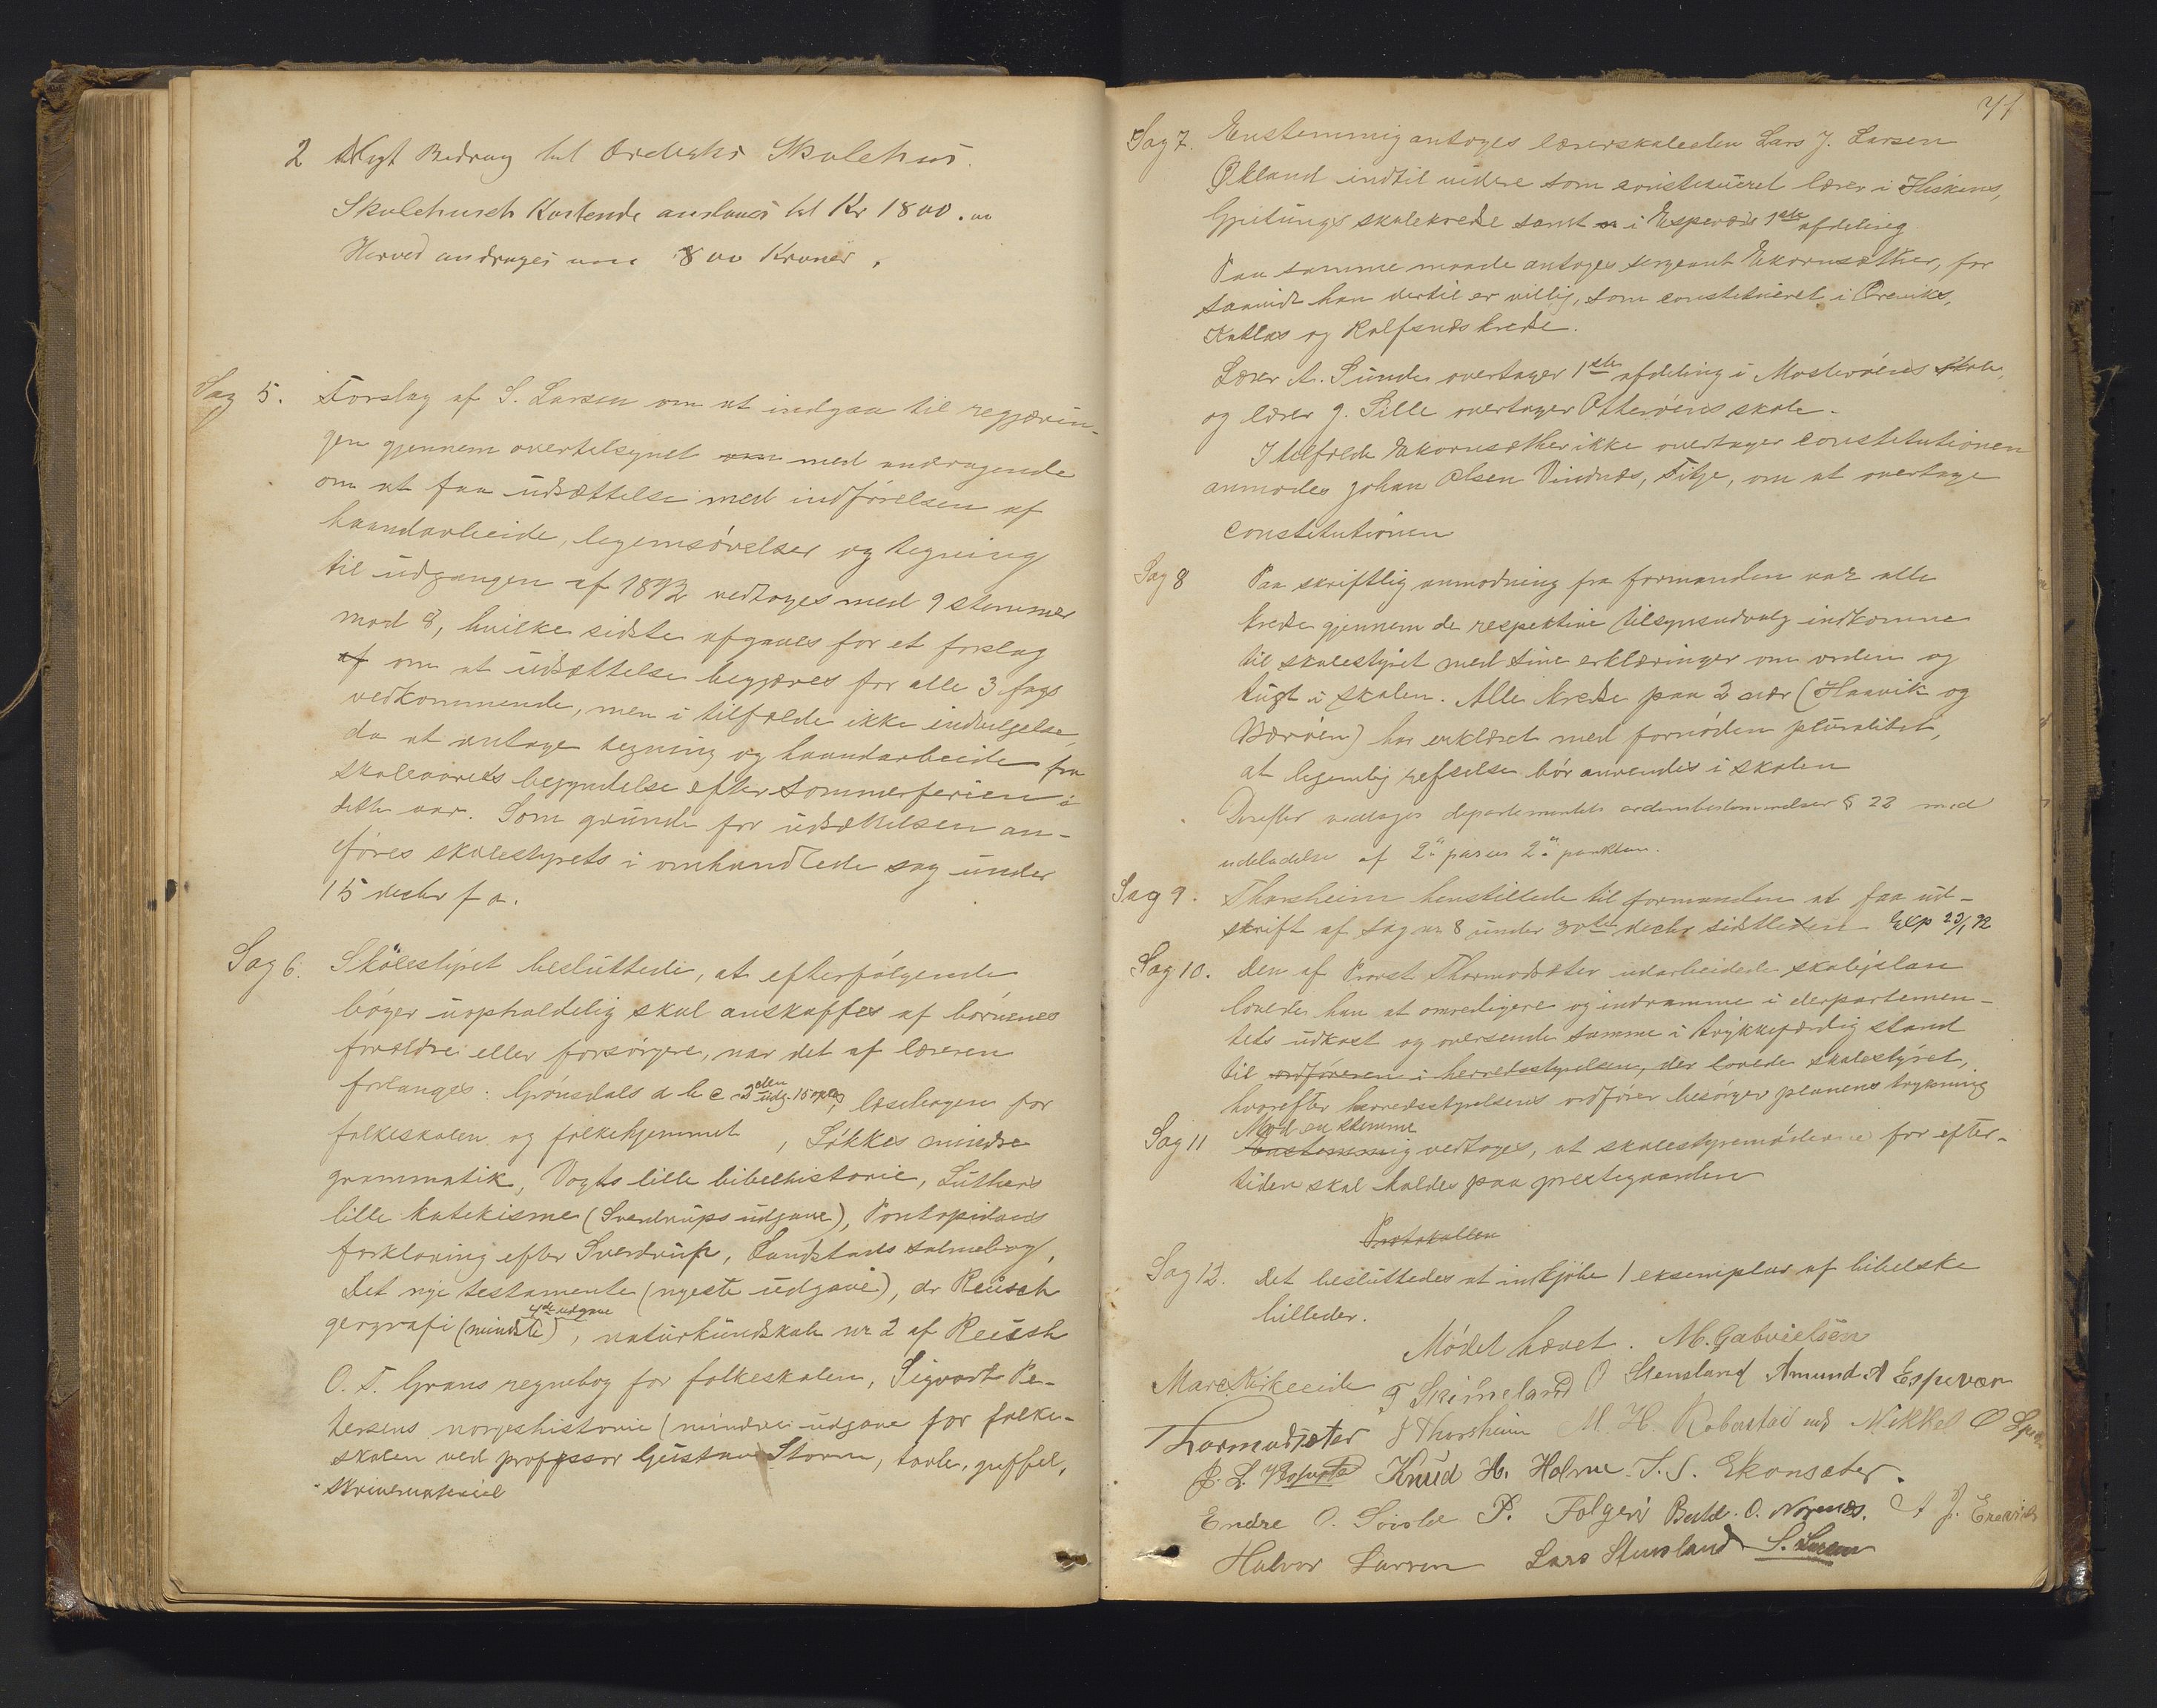 2 Nyt Bidrag til Skolehus.
Skolehusets Kostende anslaaes til Kr 1800.00
Herved andrages om 800 Kroner.
Sag 5. Forslag af S. Larsen om at indgaa til regjærin-
gen gjennem overtilsynet om med andragende
om at faa udsættelse med indførelsen af
haandarbeide, legemsøvelser og tegning
til udgangen af 1892 vedtoges med 9 stemmer
mod 8, hvilke sidste afgaves for et forslag
af om at udsættelse begjæres for alle 3 fags
vedkommende, men i tilfælde ikke indvilgelse,
da at antage tegning og haandarbeide fra
skoleaarets begyndelse efter sommerferien i
dette aar. Som grunde for udsættelsen an-
føres skolestyrets i omhandlede sag under
15 decbr f a.
Sag 6. Skolestyret besluttede, at efterfølgende
bøger uopholdelig skal anskaffes af børnenes
forældre eller forsørgere, naar det af læreren
forlanges: Grønsdals a b c 2den udg. 15 opl., læsebogen for
folkeskolen og folkehjemmet, Løkkes mindre
grammatik, Vogts lille bibelhistorie, Luthers
lille katekisme (Sverdrups udgave), Pontopidans
forklaring efter Sverdrup, Landstads salmebog,
Det nye testamente (nyeste udgave), dr Reusch
geografi (mindste) 4de udgave, naturkundskab nr 2 af Reusch
O. T. Grans regnebog for folkeskolen, Sigvart Pe-
tersens norgeshistorie (mindre udgave for folke-
skolen ved professor Gustav Storm, tavle, griffel,
skrivemateriel
71
Sag 7. Enstemmig antoges lærerskoleelev Lars J. Larsen
Økland indtil videre som constitueret lærer i Hiskens,
Gjeitungs skolekrede samt i Espevær 1ste afdeling
Paa samme maade antoges sergeant Ekornsæther, for
saavidt han dertil er villig, som constitueret i
Katlas og Rolfsnes krede.
Lærer A. Sunde overtager 1ste afdeling i Mosterøens skole,
og lærer J. Lille overtager Otterøens skole.
I tilfælde Ekornsæther ikke overtager constitutionen
anmodes Johan Olsen Vindnæs, Fitje, om at overtage
constitutionen
Sag 8 Paa skriftlig anmodning fra formanden var alle
krede gjennem de respektive tilsynsudvalg indkomne
til skolestyret med sine erklæringer om orden og
tugt i skolen. Alle krede paa 2 nær (Haavik og
Børøen) har erklæret med fornøden pluralitet,
at legemlig refselse bør anvendes i skolen
Derefter vedtoges departementets ordensbestemmelser § 23 med
udeladelse af 2" passus 2" punktum.
Sag 9. Thorsheim henstillede til formanden at faa ud-
skrift af sag nr 8 under 30te decbr sidstleden Exp 23/1 92
Sag 10. Den af Provst Thormodsæter udarbeidede skoleplan
lovede han at omredigere og indramme i departemen-
tets udkast og oversende samme i trykkefærdig stand
til ordføreren i herredsstyrelsen, der lovede skolestyret,
hvorefter herredsstyrelsens ordfører besørger planens trykning
Sag 11 Mod en stemme
Enstemmig vedtoges, at skolestyremøderne for efter-
tiden skal holdes paa prestegaarden
Protokollen
Sag 12. Det besluttedes at indkjøbe 1 eksemplar af bibelske
billeder.
Mødet hævet. M. Gabrielsen
T Skimeland O Stensland Amund A Espevær
Thormodsæter J Thorsheim M. H. Mikkel O
Knud H. Holme. T. S. Ekonsæter.
Endre O. P. Folgerø O. A J.
Halvor Larsen Lars Stensland S. Larsen